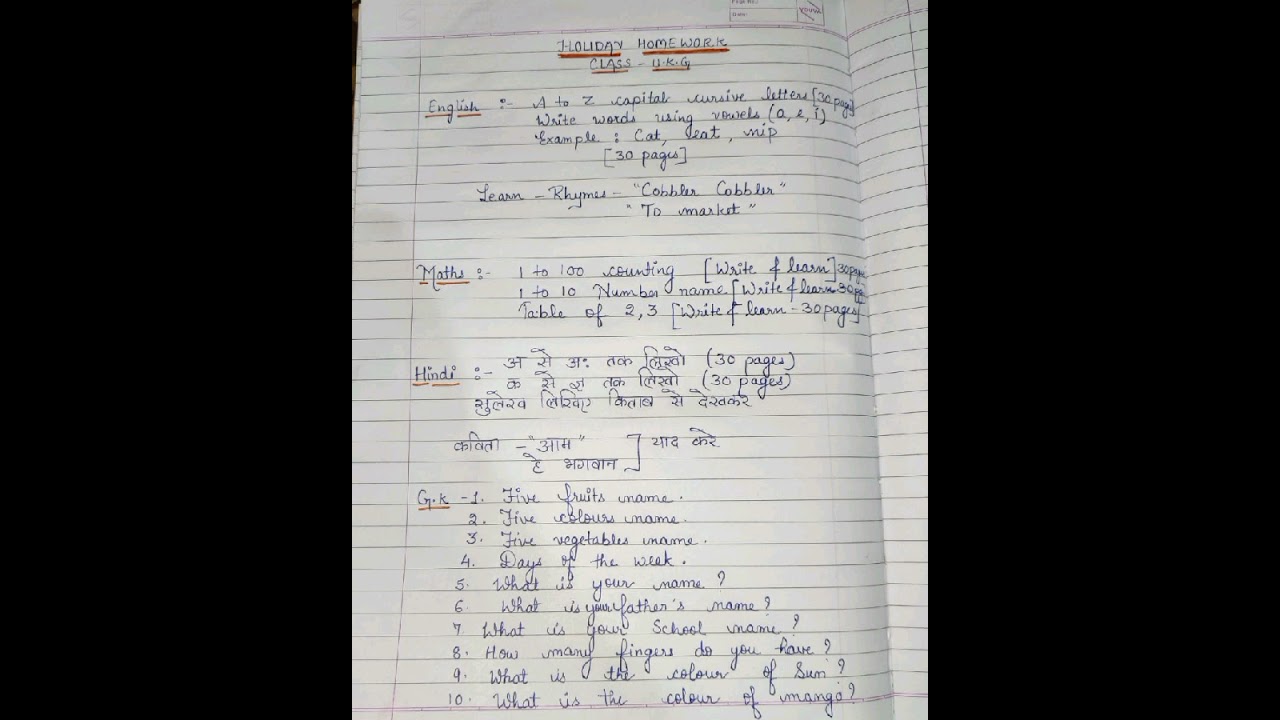 Page No.
Date:
YOUVA
HOLIDAY HOMEWORK
CLASS - U.K.G
English :- A to Z capital cursive letters [30 pages]
Write words using vowels (a, e, i)
Example : Cat, eat, nip
[30 pages]
Learn - Rhymes - "Cobbler Cobbler"
"To market"
Maths :- 1 to 100 counting [Write & learn] 30 page
1 to 10 Number name [Write & learn 30 pa
Table of 2, 3 [Write & learn - 30 pages]
Hindi :- अ से अः तक लिखो (30 pages)
क से ज्ञ तक लिखो (30 pages)
सुलेख लिखिए किताब से देखकर
कविता - "आम" ] याद करे
हे भगवान
G.K - 1. Five fruits name.
2. Five colours name.
3. Five vegetables name.
4. Days of the weak.
5. What is your name ?
6. What is your father's name ?
7. What is your School name ?
8. How many fingers do you have ?
9. What is the colour of Sun ?
10. What is the colour of mango ?